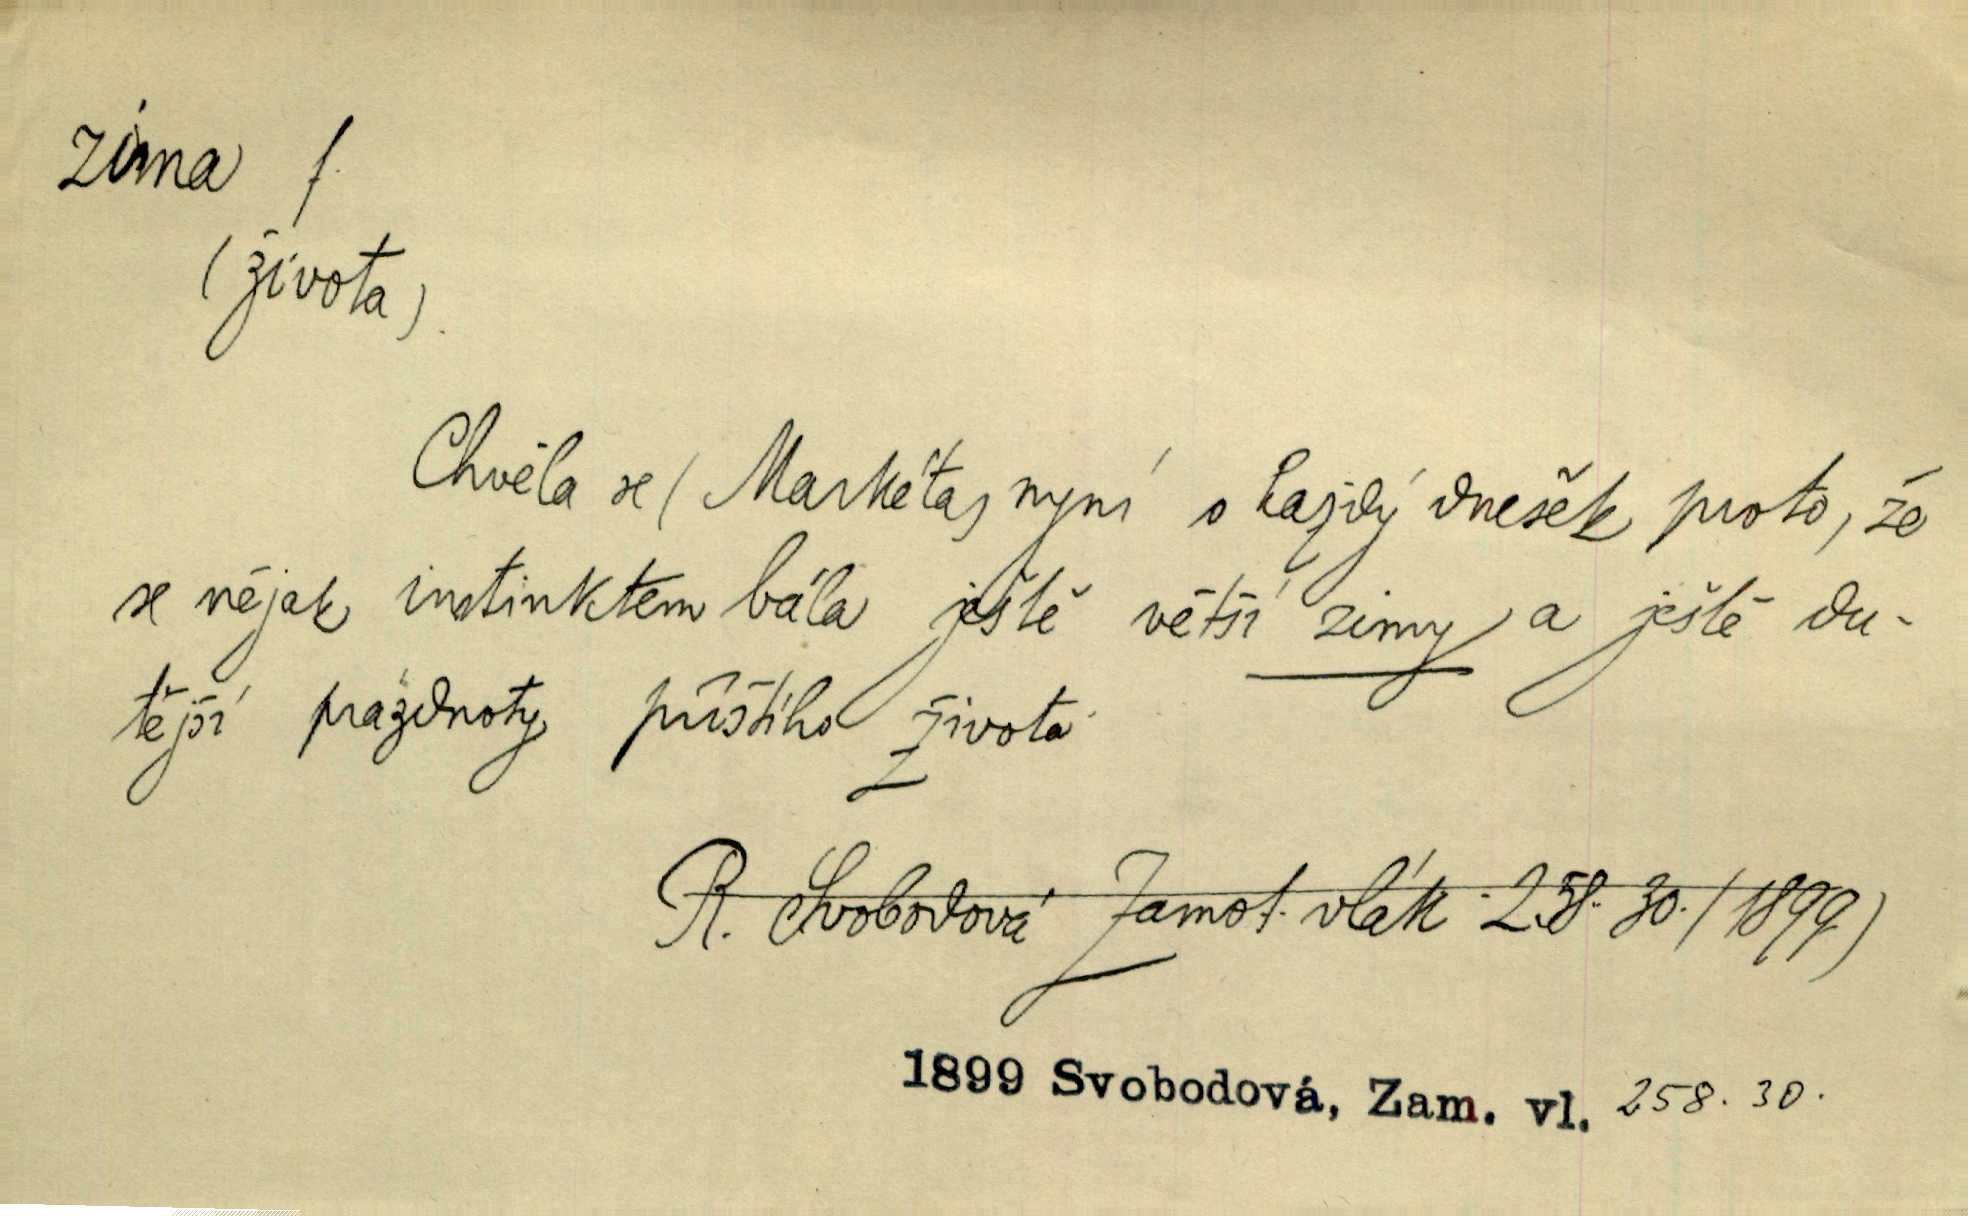 zima f.
(života).
Chvěla se (Markéta) nyní o každý dnešek proto, že
se nějak instinktem bála ještě větší zimy a ještě du-
tější prázdnoty příštího života.
R. Svobodová Zamot. vlák. 258. 30. (1899)
1899 Svobodová, Zam. vl. 258. 30.